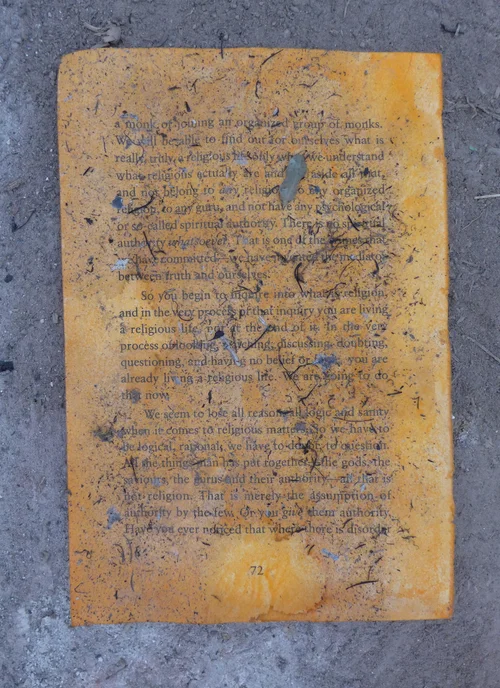 a monk, or joining an organized group of monks.
We will be able to find out for ourselves what is
really, truly, a religious life only when we understand
what religions actually are and put aside all that,
and not belong to any religion, to any organized
religion, to any guru, and not have any psychological
or so-called spiritual authority. There is no spiritual
authority whatsoever. That is one of the crimes that
we have committed—we have invented the mediator
between truth and ourselves.
So you begin to inquire into what is religion,
and in the very process of that inquiry you are living
a religious life, not at the end of it. In the very
process of looking, watching, discussing, doubting,
questioning, and having no belief or you are
already living a religious life. We are going to do
that now.
We seem to lose all reason, all logic and sanity
when it comes to religious matters. So we have to
be logical, rational; we have to doubt, to question.
All the things man has put together—the gods, the
saviours, the gurus and their authority—all that is
not religion. That is merely the assumption of
authority by the few. Or you give them authority.
Have you ever noticed that where there is disorder
72